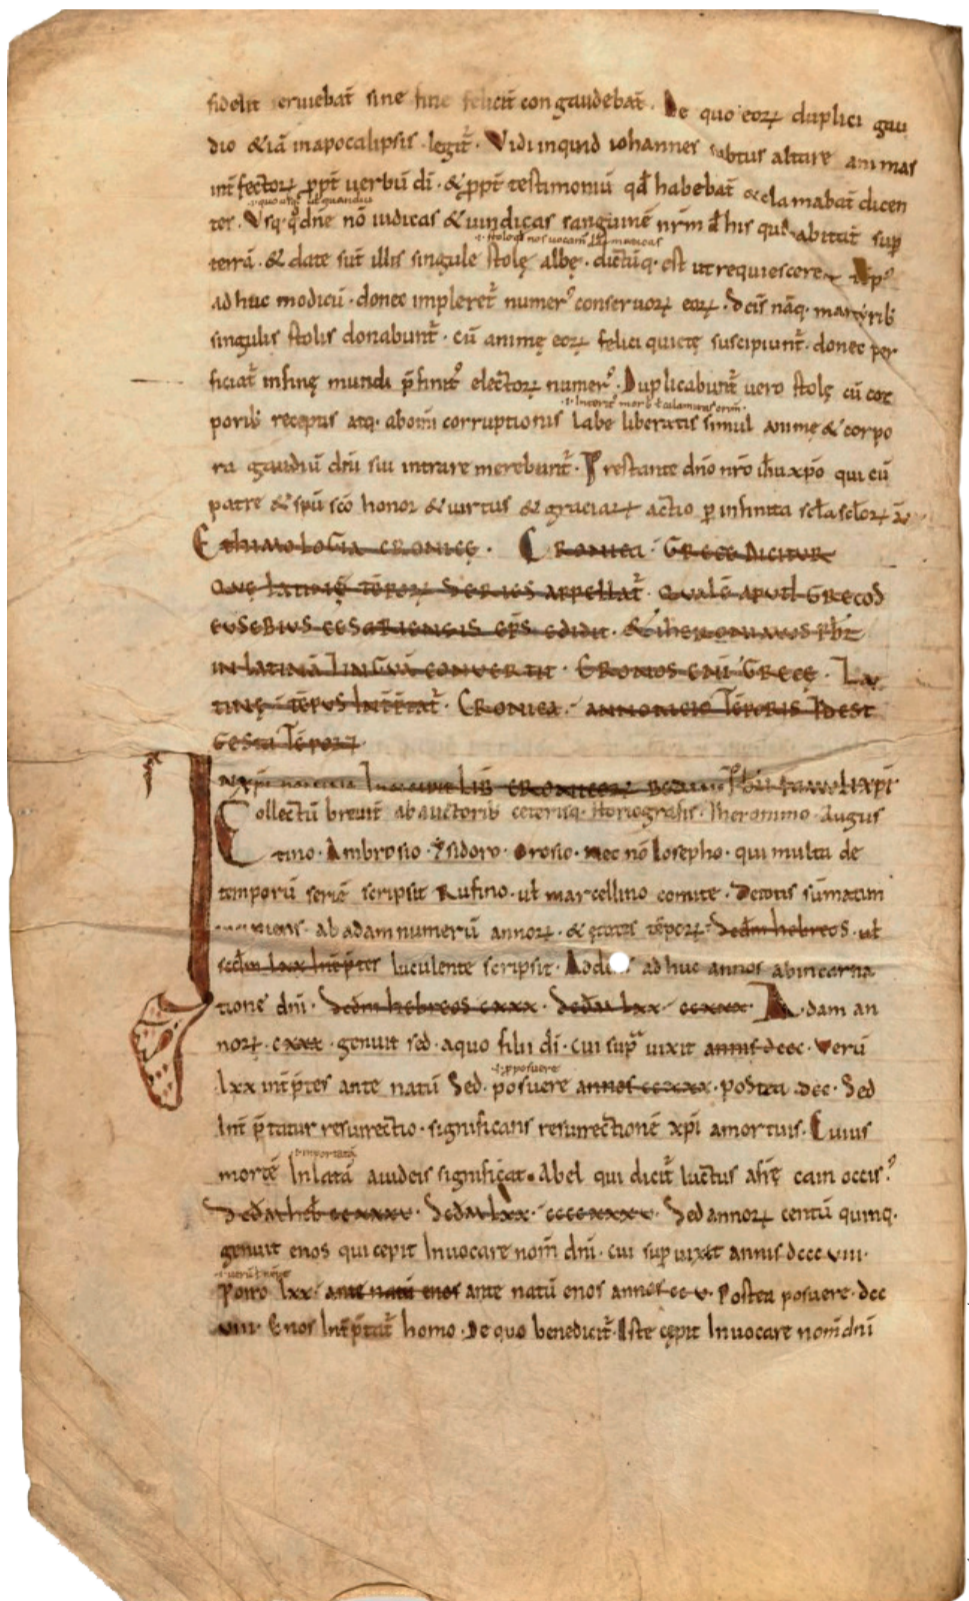 fidelit̄ seruiebat̄ sine fine felicit̄ congaudebat̄. De quo eoꝝ duplici gau
dio & iā in apocalipsis legit̄. Vidi inquid iohannes subtus altare animas
int̄fectoꝝ ꝓpt̄ uerbū dī. & ꝓpt̄ testimoniū qđ habebat̄ & clamabat̄ dicen
tes. Vsq; q̄ dn̄e nō iudicas & uindicas sanguinē nr̄m đ his qui abitat̄ sup̄
terrā. & date sūt illis singule stolę albę. dictūq; est ut requiescerent
ad huc modicū. donec impleret̄ numerꝰ conseruoꝝ eoꝝ. Scīs nāq; martyrib;
singulis stolis donabunt̄. cū animę eoꝝ felici quietę suscipiunt̄. donec per
ficiat̄ in finę mundi p̄finitꝰ electoꝝ numerꝰ. Duplicabunt̄ uero stolę cū cor
porib; receptis atq; ab om̄i corruptionis labe liberatis simul animę & corpo
ra gaudiū dn̄i sui intrare merebunt̄. Prestante dn̄o nr̄o ih̄u xp̄o qui cū
patre & sp̄u sc̄o honor & uirtus & graciaꝝ actio ꝑ infinita scl̄a scl̄oꝝ am̄
EthimoLOGIA CRONICĘ. CRONICA GRECE DICITUR
QUĘ LATINĘ TĒPOꝝ SERIES APPELLAT̄. QUALĒ APUD GRECOS
EUSEBIUS CESARIENSIS EP̄S EDIDIT. & IHERONIMUS PB̄R
IN LATINĀ LINGUĀ CONUERTIT. CRONOS ENĪ GRECE. LA
TINĘ TĒPUS INT̄P̄TAT̄. CRONICA. ANNONCIO TĒPORIS ID EST
GESTA TĒPOꝝ
IN Xp̄i nomine Incipit LIB̄ CRONICOꝝ BEDANI PB̄RI FAMULI XPI
Collectū breuit̄ ab auctorib; ceterisq; storiografis. Iheronimo. Augus
tino. Ambrosio. Ysidoro. Orosio. Nec nō Iosepho. qui multa de
temporū seriē scripsit Rufino. ul̄ marcellino comite. De totis sūmatim
ab adam numerū annoꝝ. & ętatis tēpoꝝ. Scdm hebreos. ul̄
scdm lxx Int̄p̄tes luculente scripsit. ad huc annos ab incarna
tione dn̄i. Scdm hebreos cxxx. Scdm lxx. ccxxx. Adam an
noꝝ. cxxx. genuit sed. a quo filii dī. cui sup̄ uixit annis dccc. Verū
lxx int̄p̄tes ante natū Sed. posuere annos ccxxx. Postea. dcc. Sed
Int̄p̄tatur resurrectio. significans resurrectionē xp̄i a mortuis. Cuius
mortę Inlatā a iudeis significat. Abel qui dicit̄ luctus a frē cain occisꝰ
Scdm heb̄ ccxxxv. Scdm lxx. ccccxxxv. Sed annoꝝ centū quinq;
genuit enos qui cepit Inuocare nom̄ dn̄i. cui sup uixit annis dccc vii.
Porro lxx. ante natū enos ante natū enos annos cc v. Postea posuere. dcc
vii. Enos Int̄p̄tat̄ homo. De quo bene dicit̄. Iste cępit Inuocare nom̄ dn̄i